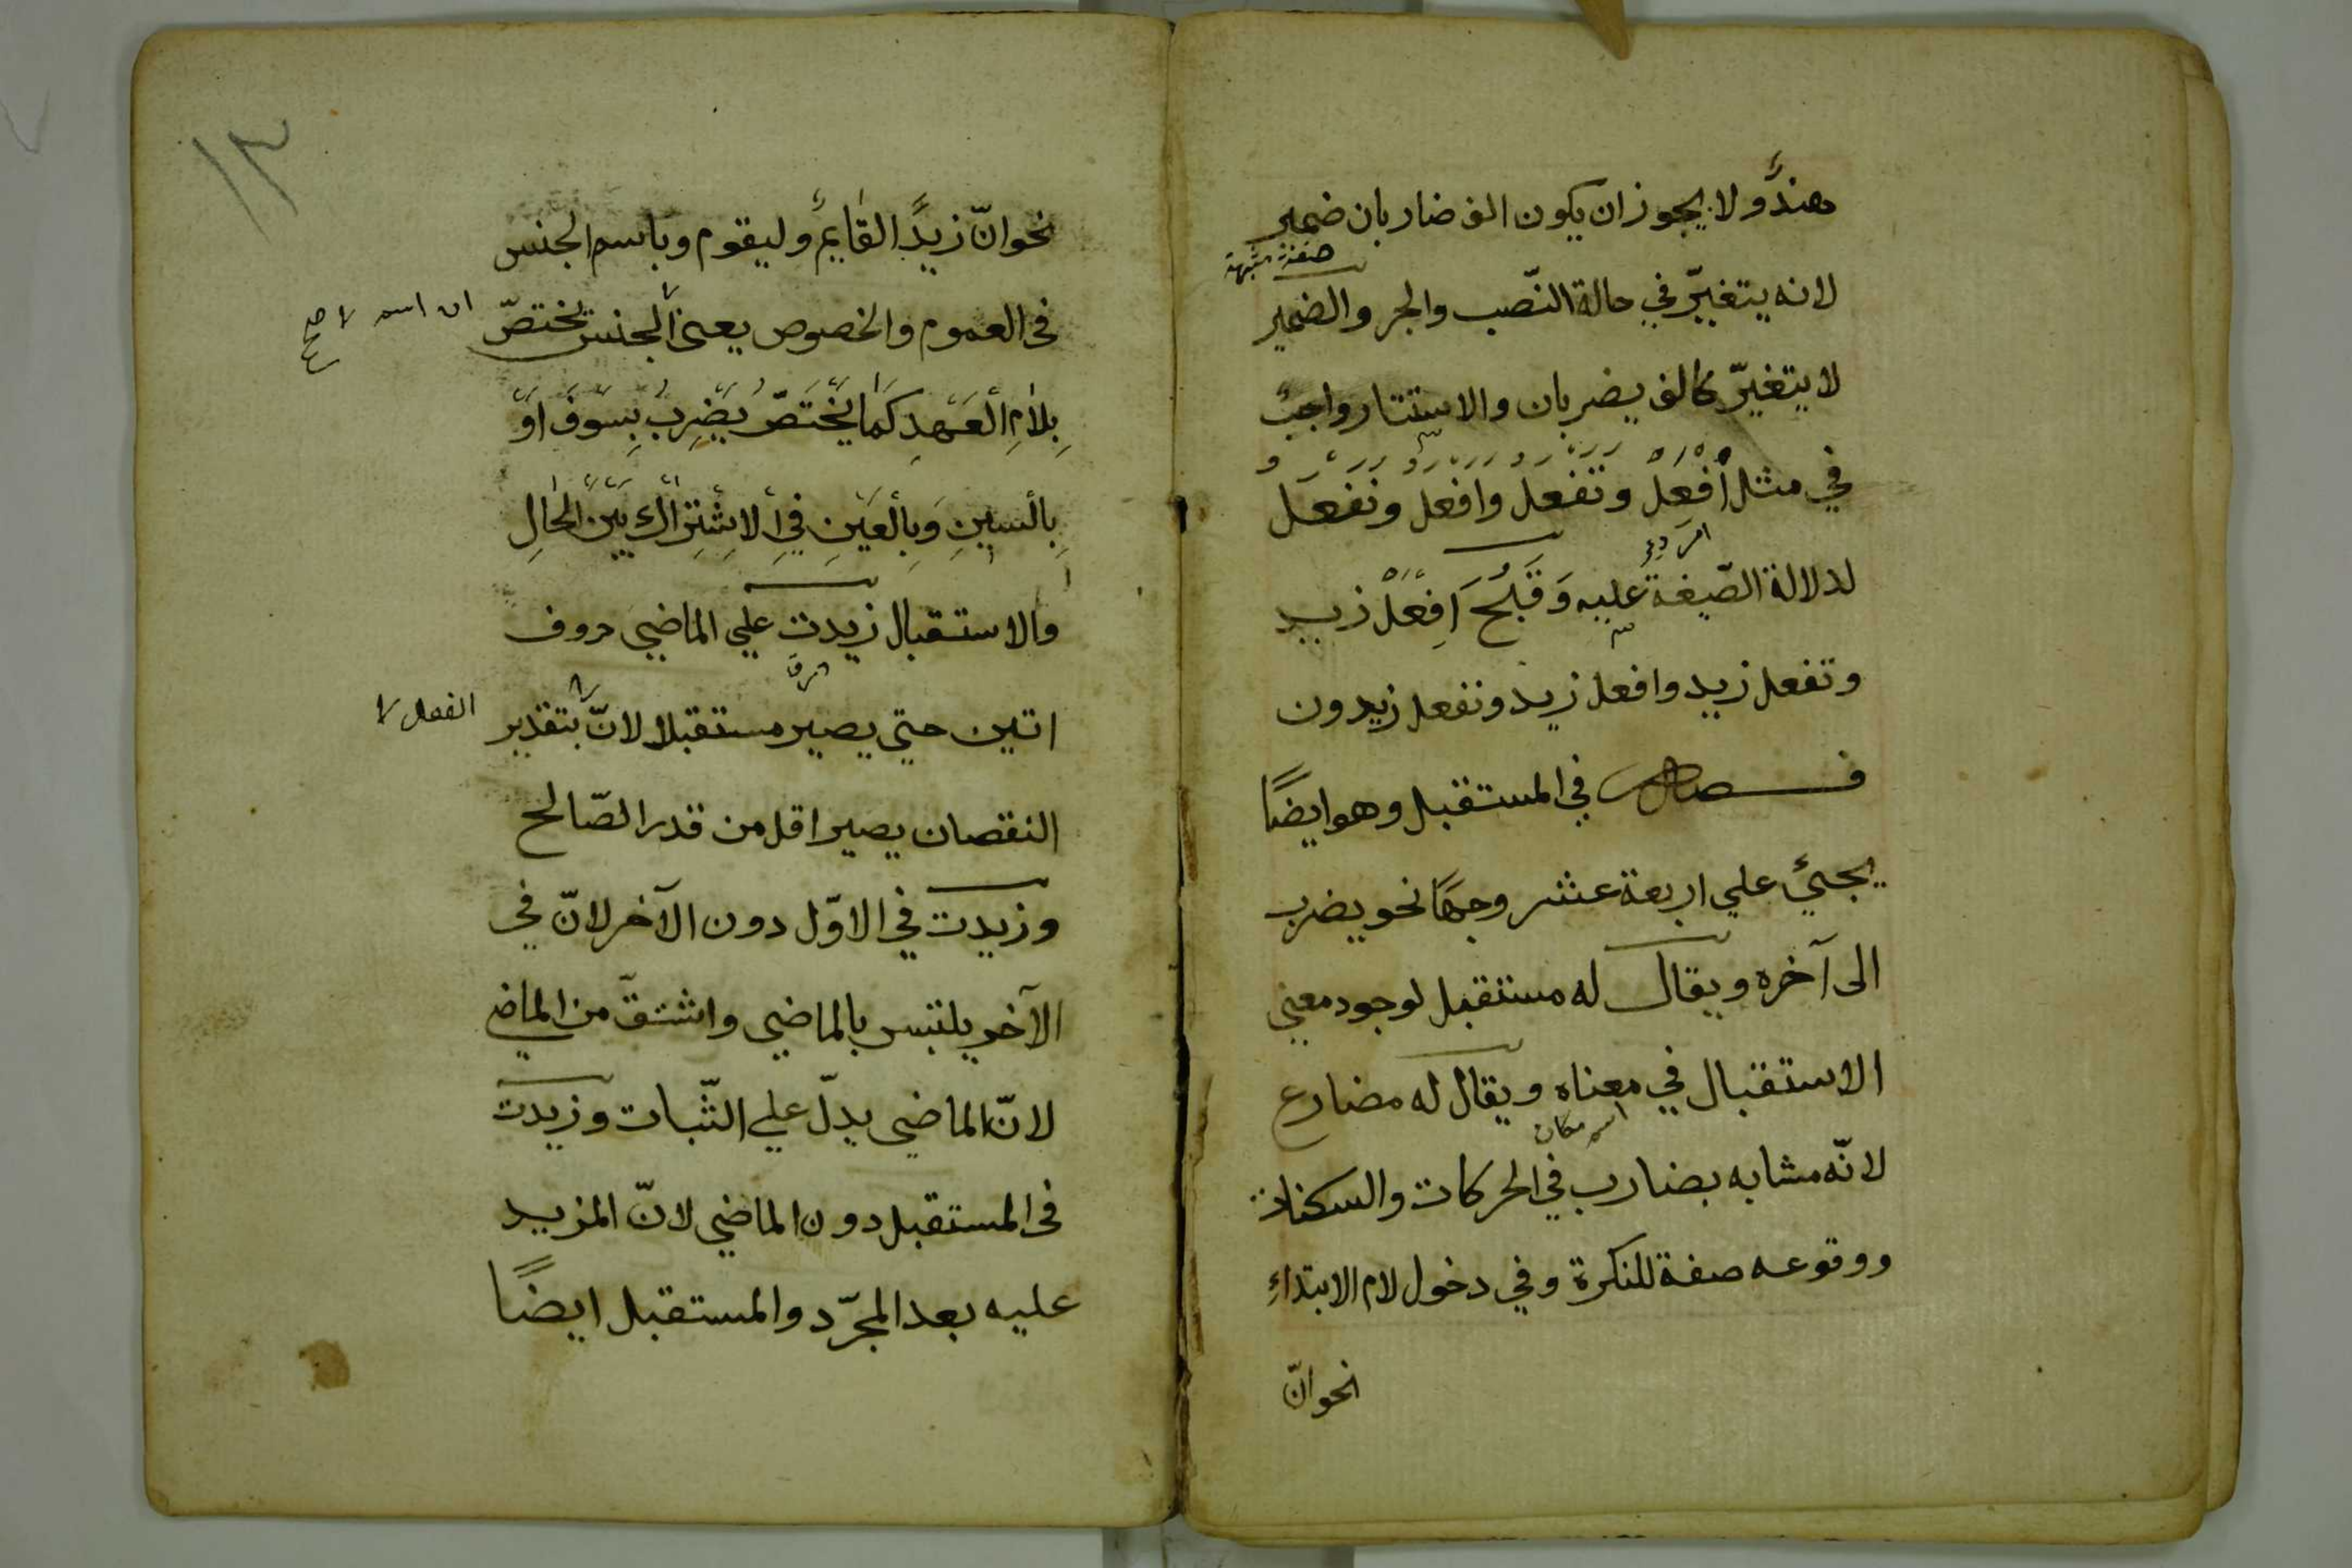 هندٌ ولا يجوز ان يكون الف ضاربان ضمير
صفة مشبهة
لانه يتغيّر في حالة النّصب والجر والضمير
لا يتغيّر كالف يضربان والاستتار واجب
في مثل اِفْعَلْ وتفعل وافعل ونفعل
امر
لدلالة الصّيغة عليه وَقَبُحَ اِفْعَلْ زيد
وتفعل زيد وافعل زيد ونفعل زيدون
فصل في المستقبل وهو ايضًا
يجئ علي اربعة عشر وجهًا نحو يضرب
الى آخره ويقال له مستقبل لوجود معني
الاستقبال في معناه ويقال له مضارع
اسم مكان
لانّه مشابه بضارب في الحركات والسكنات
ووقوعه صفة للنكرة وفي دخول لام الابتداءِ
نحو انّ
١٣
نحو انّ زيدًا القايمٌ وليقوم وباسم الجنس
في العموم والخصوص يعنى الجنس يختصّ
ان اسم صح
بِلامِ الْعَهْدِ كَمَا يَخْتَصُّ يَضْرِبُ بِسَوْفَ اَوْ
بِالْسِينِ وَبِالْعَيْنِ فِي الْاِشْتِرَاكِ بَيْنَ الْحَالِ
والاستقبال زيدت علي الماضي حروف
اتين حتي يصير مستقبلا لانّ بتقدير
الفعل
النقصان يصير اقل من قدر الصّالح
وزيدت في الاوّل دون الآخر لانّ في
الآخر يلتبس بالماضي واشتقّ من الماضي
لانّ الماضي يدلّ علي الثّبات وزيدت
في المستقبل دون الماضي لانّ المزيد
عليه بعد المجرّد والمستقبل ايضًا